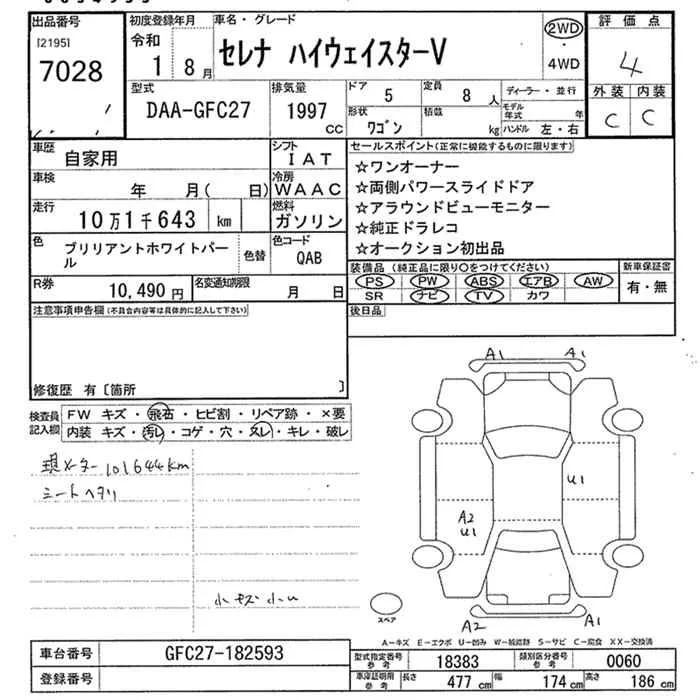 出品番号 初度登録年月 車名・グレード 2WD ・ 4WD 評価点
[2195] 令和 セレナ ハイウェイスターV 4
7028 1 8月 外装 内装
型式 排気量 ドア 5 定員 8人 ディーラー・並行 C C
DAA-GFC27 1997 cc 形状 ワゴン 積載 kg モデル年式 年
ハンドル 左・右
車歴 自家用 シフト IAT セールスポイント(正常に機能するものに限ります)
車検 年 月( 日) 冷房 WAAC ☆ワンオーナー
走行 10万1千643 km 燃料 ガソリン ☆両側パワースライドドア
☆アラウンドビューモニター
☆純正ドラレコ
☆オークション初出品
色 ブリリアントホワイトパール 色替 色コード QAB
装備品(純正品に限り○をつけてください) 新車保証書
PS PW ABS エアB AW 有・無
SR ナビ TV カワ
R券 10,490円 名変通知期限 月 日
注意事項申告欄(不具合内容等は具体的に記入して下さい) 後日品
修復歴 有〔箇所 〕
検査員記入欄 FW キズ・飛石・ヒビ割・リペア跡・×要
内装 キズ・汚レ・コゲ・穴・スレ・キレ・破レ
現メーター 101644km
シートヘタリ
小キズ小U
A1 A1
U1
A2
U1
A2 A1
スペア
A−キズ E−エクボ U−凹み W−補修跡 S−サビ C−腐食 XX−交換済
車台番号 GFC27-182593 型式指定番号 参考 18383 類別区分番号 参考 0060
登録番号 車庫証明用 参考 長さ 477cm 幅 174cm 高さ 186cm